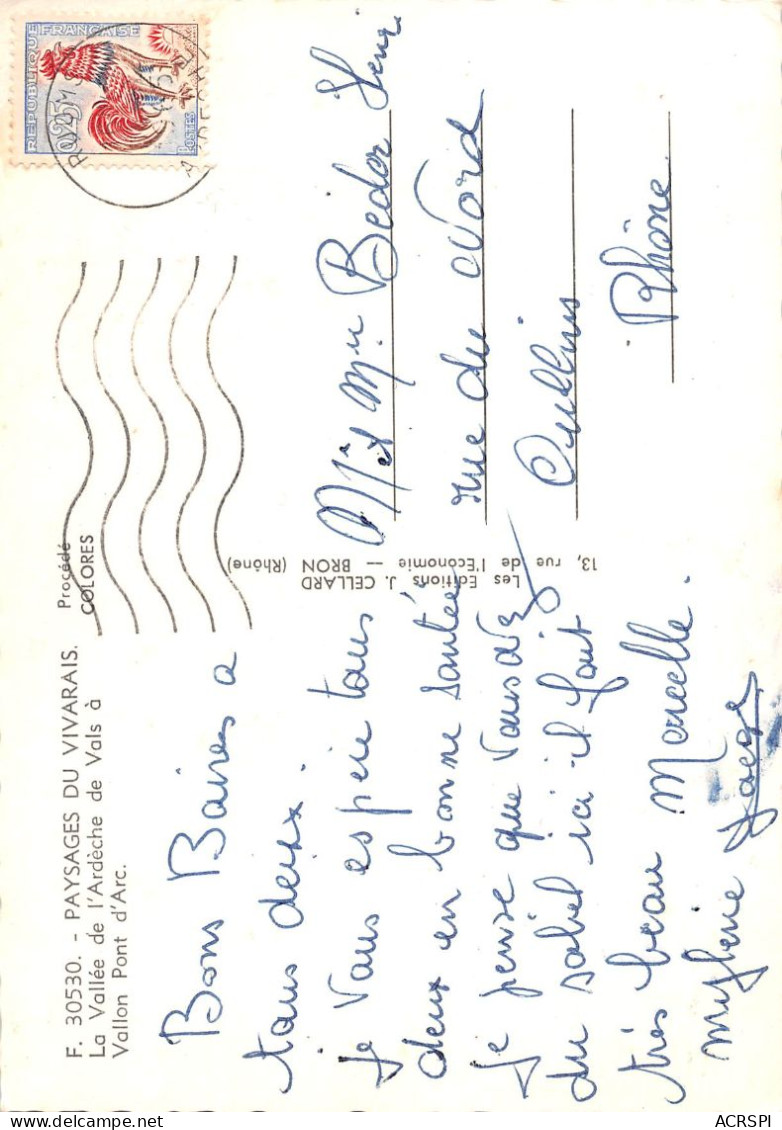 F. 30530. - PAYSAGES DU VIVARAIS.
La Vallée de l'Ardèche de Vals à
Vallon Pont d'Arc.
Procédé
COLORES
REPUBLIQUE FRANÇAISE
0,25
POSTES
Bons Baires a
tous deux.
Je Vous espère tous
deux en bonne santée
je pense que Vous avez
du soliel ici il fait
très beau Marcelle.
mylène
Les Editions J. CELLARD
13, rue de l'Economie — BRON (Rhône)
Mr et Mme Beder
rue du Nord
Oullins
Rhône
ACRSPI